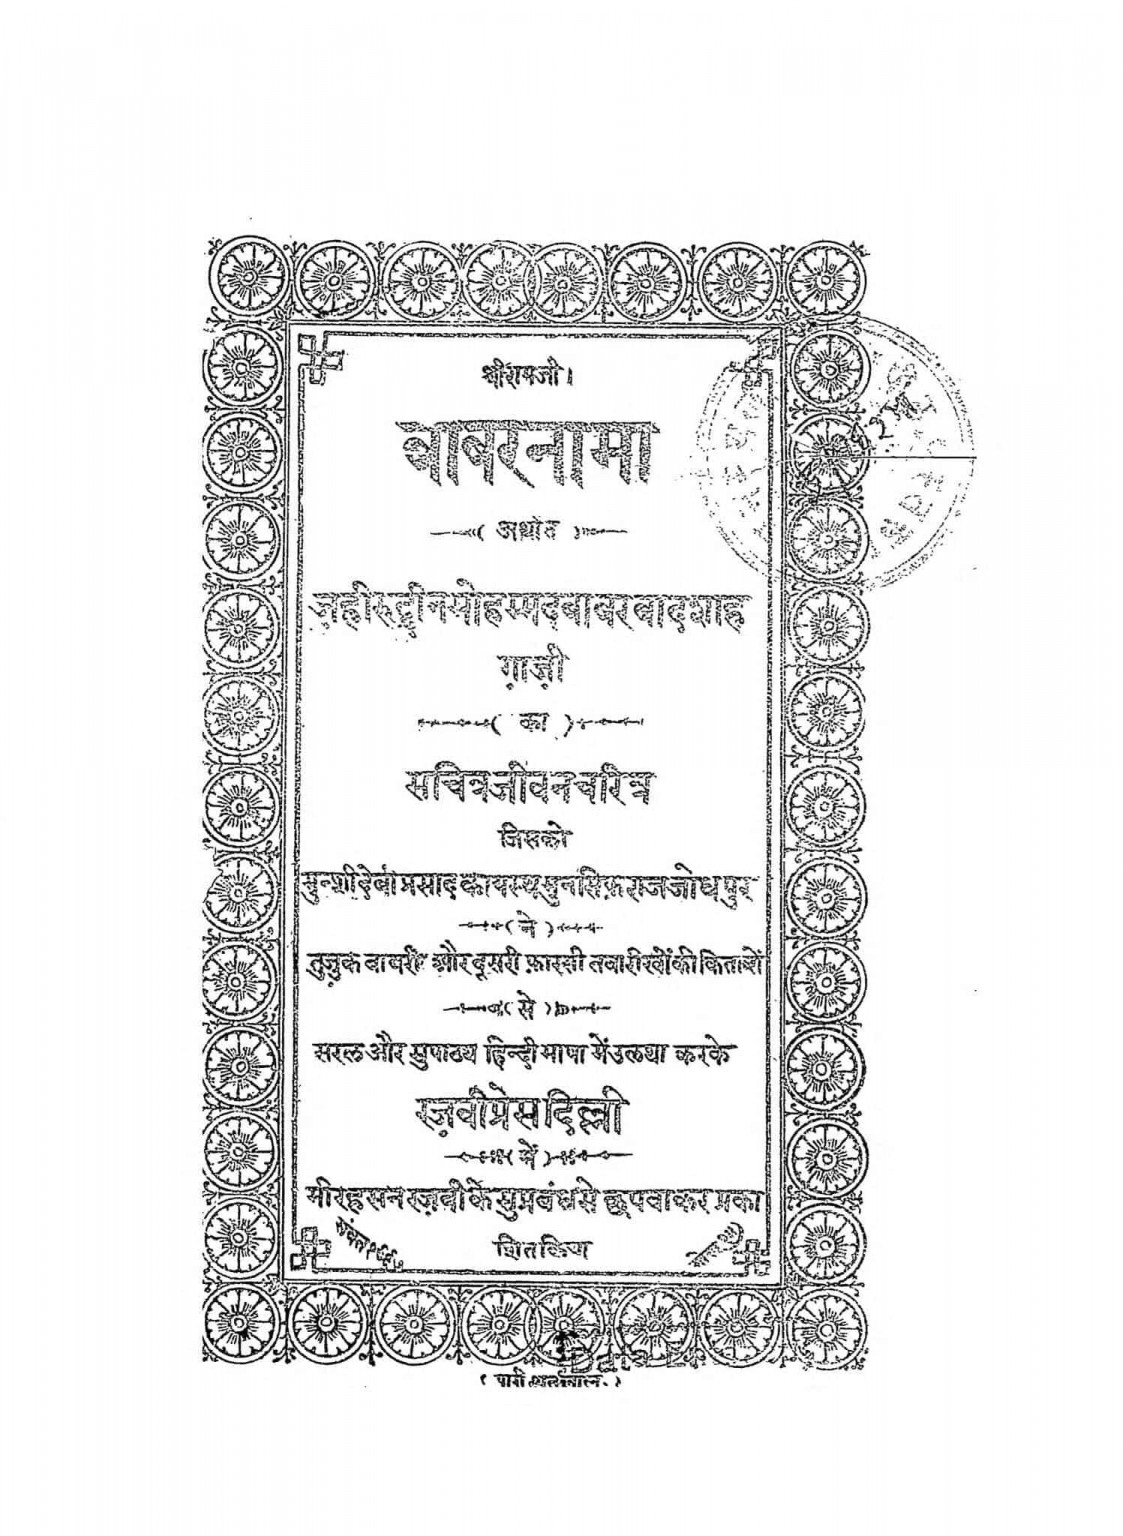 श्रीरामजी।
बाबरनामा
( अर्थात )
ज़हीरुद्दीनमोहम्मदबाबरबादशाह
ग़ाज़ी
( का )
सचित्रजीवनचरित्र
जिसको
मुन्शीदेवीप्रसादकायस्थमुनसिफ़राजजोधपुर
( ने )
तुज़ुक बाबरी और दूसरी फ़ारसी तवारीखोंकी किताबों
( से )
सरल और सुपाठ्य हिन्दी भाषा में उलथा करके
रज़वीप्रेसदिल्ली
( में )
मीरहसन रज़वीके सुप्रबंधसे छपवाकर प्रका
शित किया
संवत